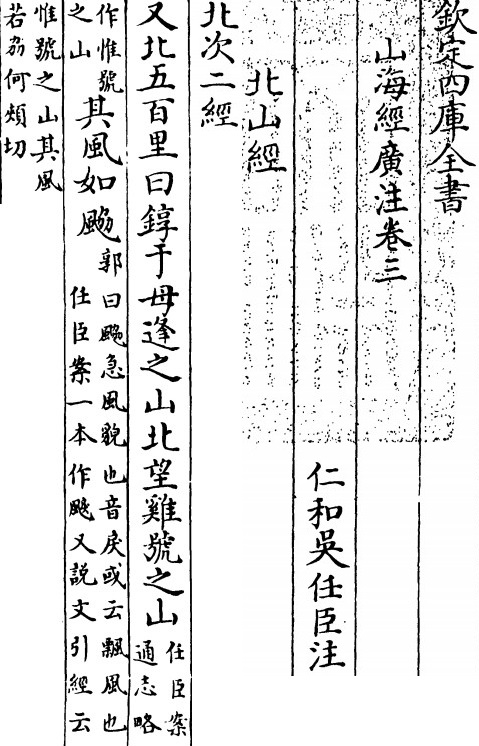 欽定四庫全書
山海經廣注卷三
仁和吳任臣注
北山經
北次二經
又北五百里曰錞于母逢之山北望雞號之山任臣案
通志略
作惟號
之山
其風如䬅郭曰䬅急風貌也音戾或云飄風也
任臣案一本作又說文引經云
惟號之山其風
若劦何頰切